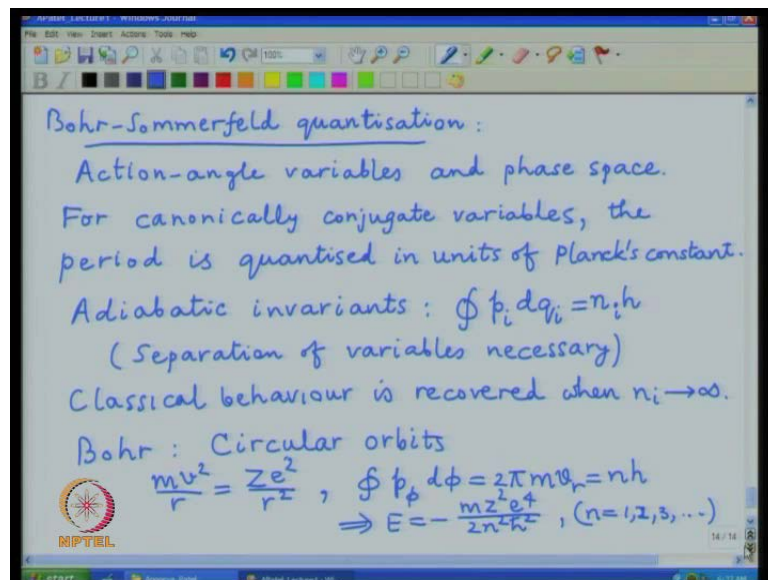 XPatel_Lecture1 - Windows Journal
File Edit View Insert Actions Tools Help
100%
B I
Bohr-Sommerfeld quantisation :
Action-angle variables and phase space.
For canonically conjugate variables, the
period is quantised in units of Planck's constant.
Adiabatic invariants : ∮ p_i dq_i = n_i h
(Separation of variables necessary)
Classical behaviour is recovered when n_i → ∞.
Bohr : Circular orbits
mv²/r = Ze²/r² , ∮ p_φ dϕ = 2π m v r = nh
⇒ E = - mZ²e⁴/2n²ℏ² , (n=1,2,3, ...)
NPTEL
14 / 14
start